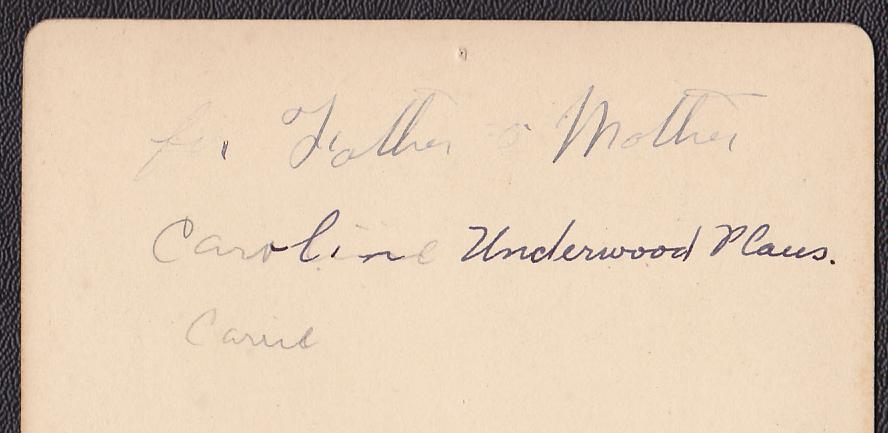 for Father & Mother
Caroline Underwood Plaus.
Carrie